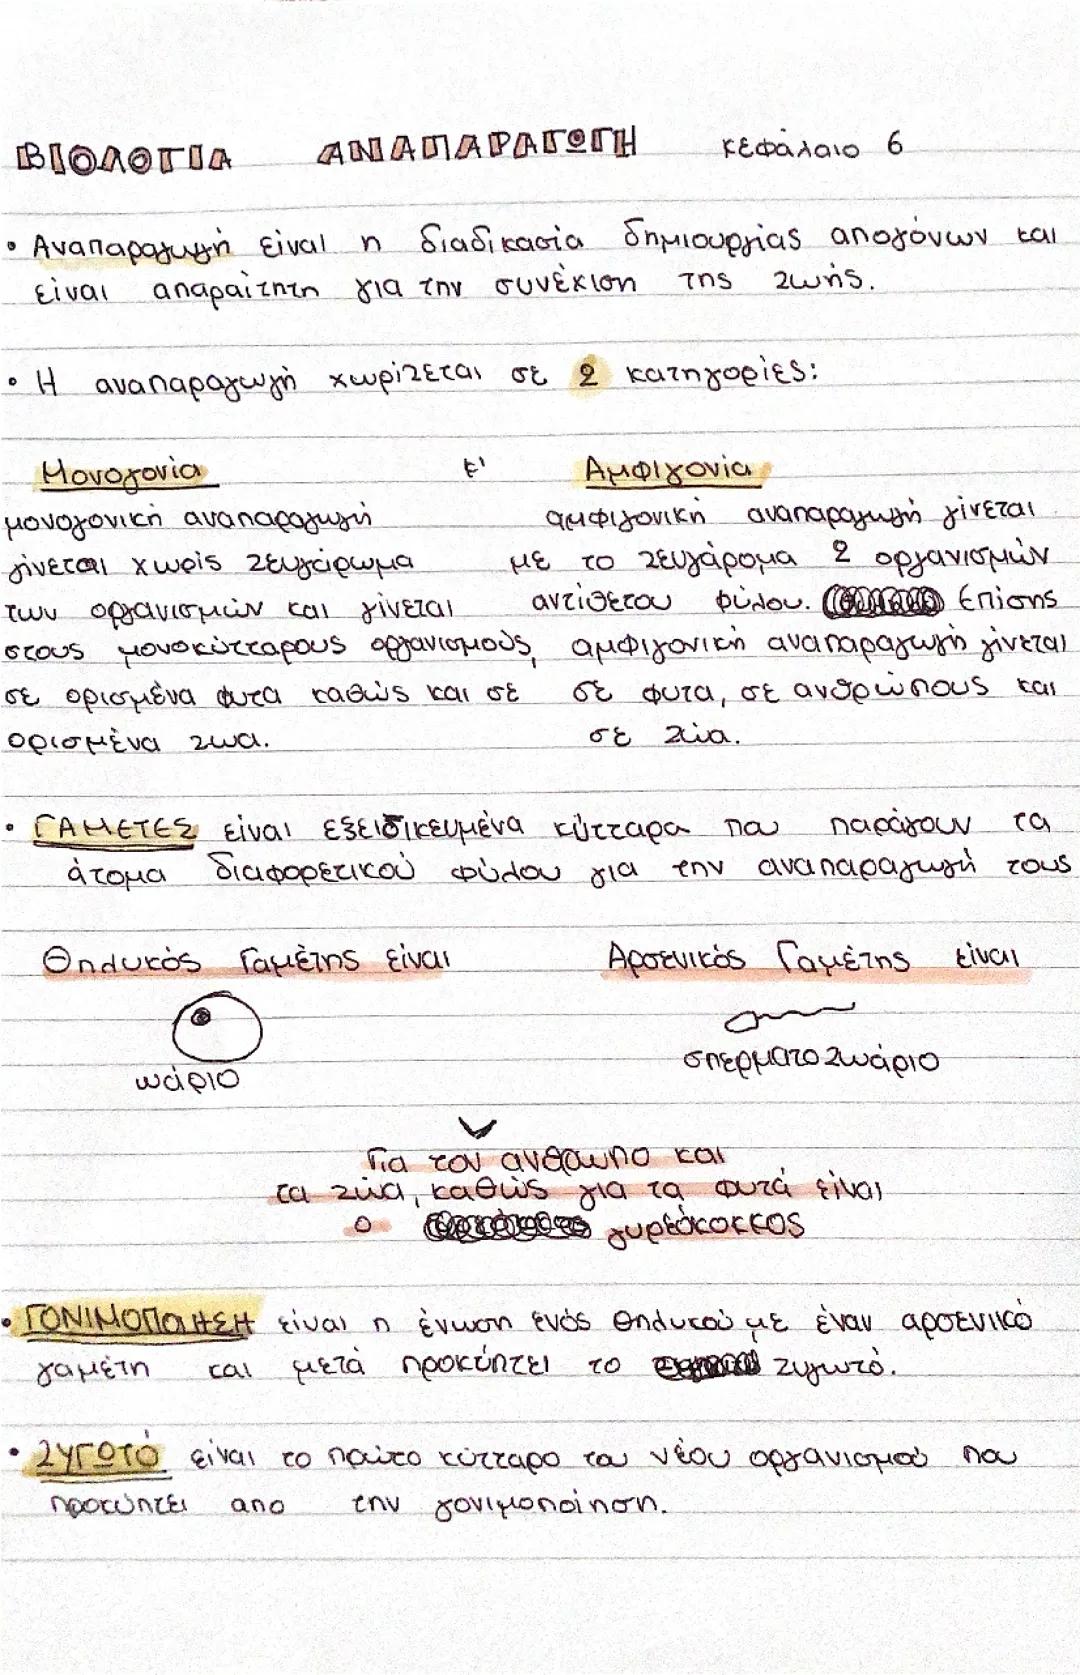 ΒΙΟΛΟΓΙΑ ΑΝΑΠΑΡΑΓΩΓΗ κεφάλαιο 6
• Αναπαραγωγή είναι η διαδικασία δημιουργίας απογόνων και
είναι απαραίτητη για την συνέχιση της ζωής.
• Η αναπαραγωγή χωρίζεται σε 2 κατηγορίες:
Μονογονία ε' Αμφιγονία
μονογονική αναπαραγωγή
γίνεται χωρίς ζευγάρωμα
των οργανισμών και γίνεται
στους μονοκύτταρους οργανισμούς,
σε ορισμένα φυτα καθώς και σε
ορισμένα ζωα.
αμφιγονική αναπαραγωγή γίνεται
με το ζευγάρομα 2 οργανισμών
αντίθετου φύλου. Επίσης
αμφιγονική αναπαραγωγή γίνεται
σε φυτα, σε ανθρώπους και
σε ζώα.
• ΓΑΜΕΤΕΣ είναι εξειδικευμένα κύτταρα που παράγουν τα
άτομα διαφορετικού φύλου για την αναπαραγωγή τους
Θηλυκός Γαμέτης είναι
ωάριο
Αρσενικός Γαμέτης είναι
σπερματοζωάριο
Για τον άνθρωπο και
τα ζώα, καθώς για τα φυτά είναι
ο γυρεόκοκκος
• ΓΟΝΙΜΟΠΟΙΗΣΗ είναι η ένωση ενός θηλυκού με έναν αρσενικό
γαμέτη και μετά προκύπτει το ζυγωτό.
• ΖΥΓΩΤΟ είναι το πρώτο κύτταρο του νέου οργανισμού που
προκύπτει απο την γονιμοποίηση.